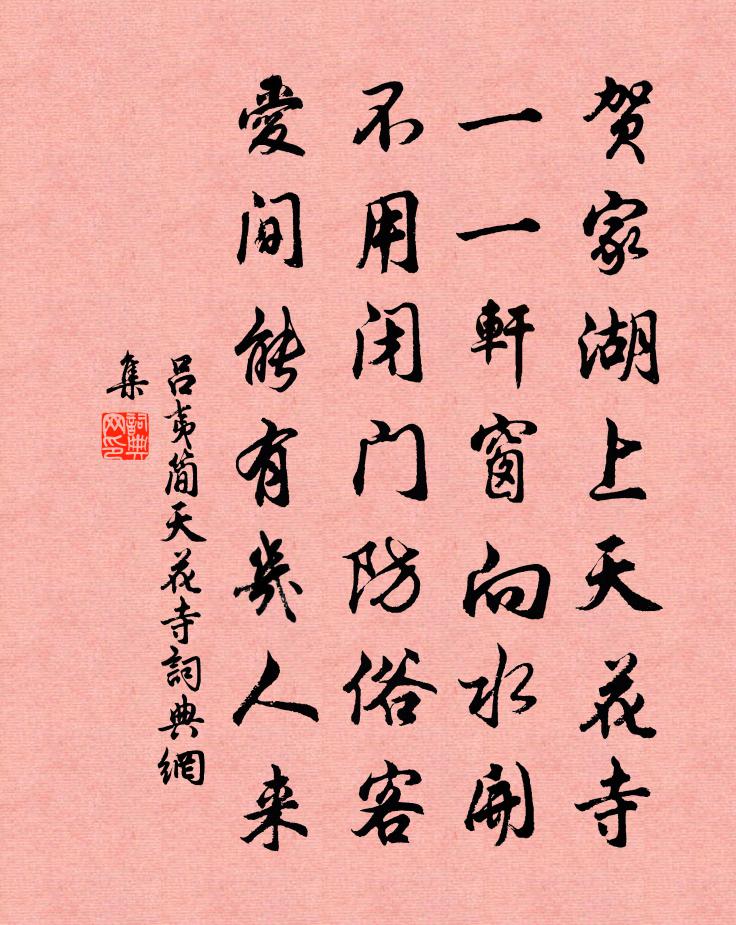 贺家湖上天花寺
一一軒窗向水開
不用闭门防俗客
愛闲能有幾人来
吕夷简天花寺詞典網
集
詞典
网印